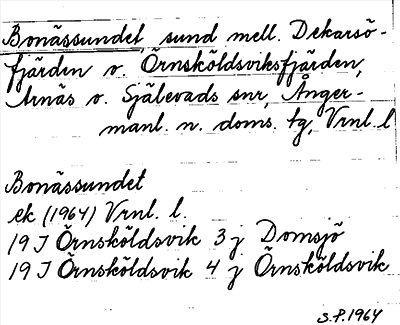 Bonässundet, sund mell. Dekarsö-
fjärden o. Örnsköldsviksfjärden,
Arnäs o. Själevads snr, Ånger-
manl. n. doms. tg, Vrnl. l
Bonässundet
ek (1964) Vrnl. l.
19 J Örnsköldsvik 3 j Domsjö
19 J Örnsköldsvik 4 j Örnsköldsvik
S.P. 1964